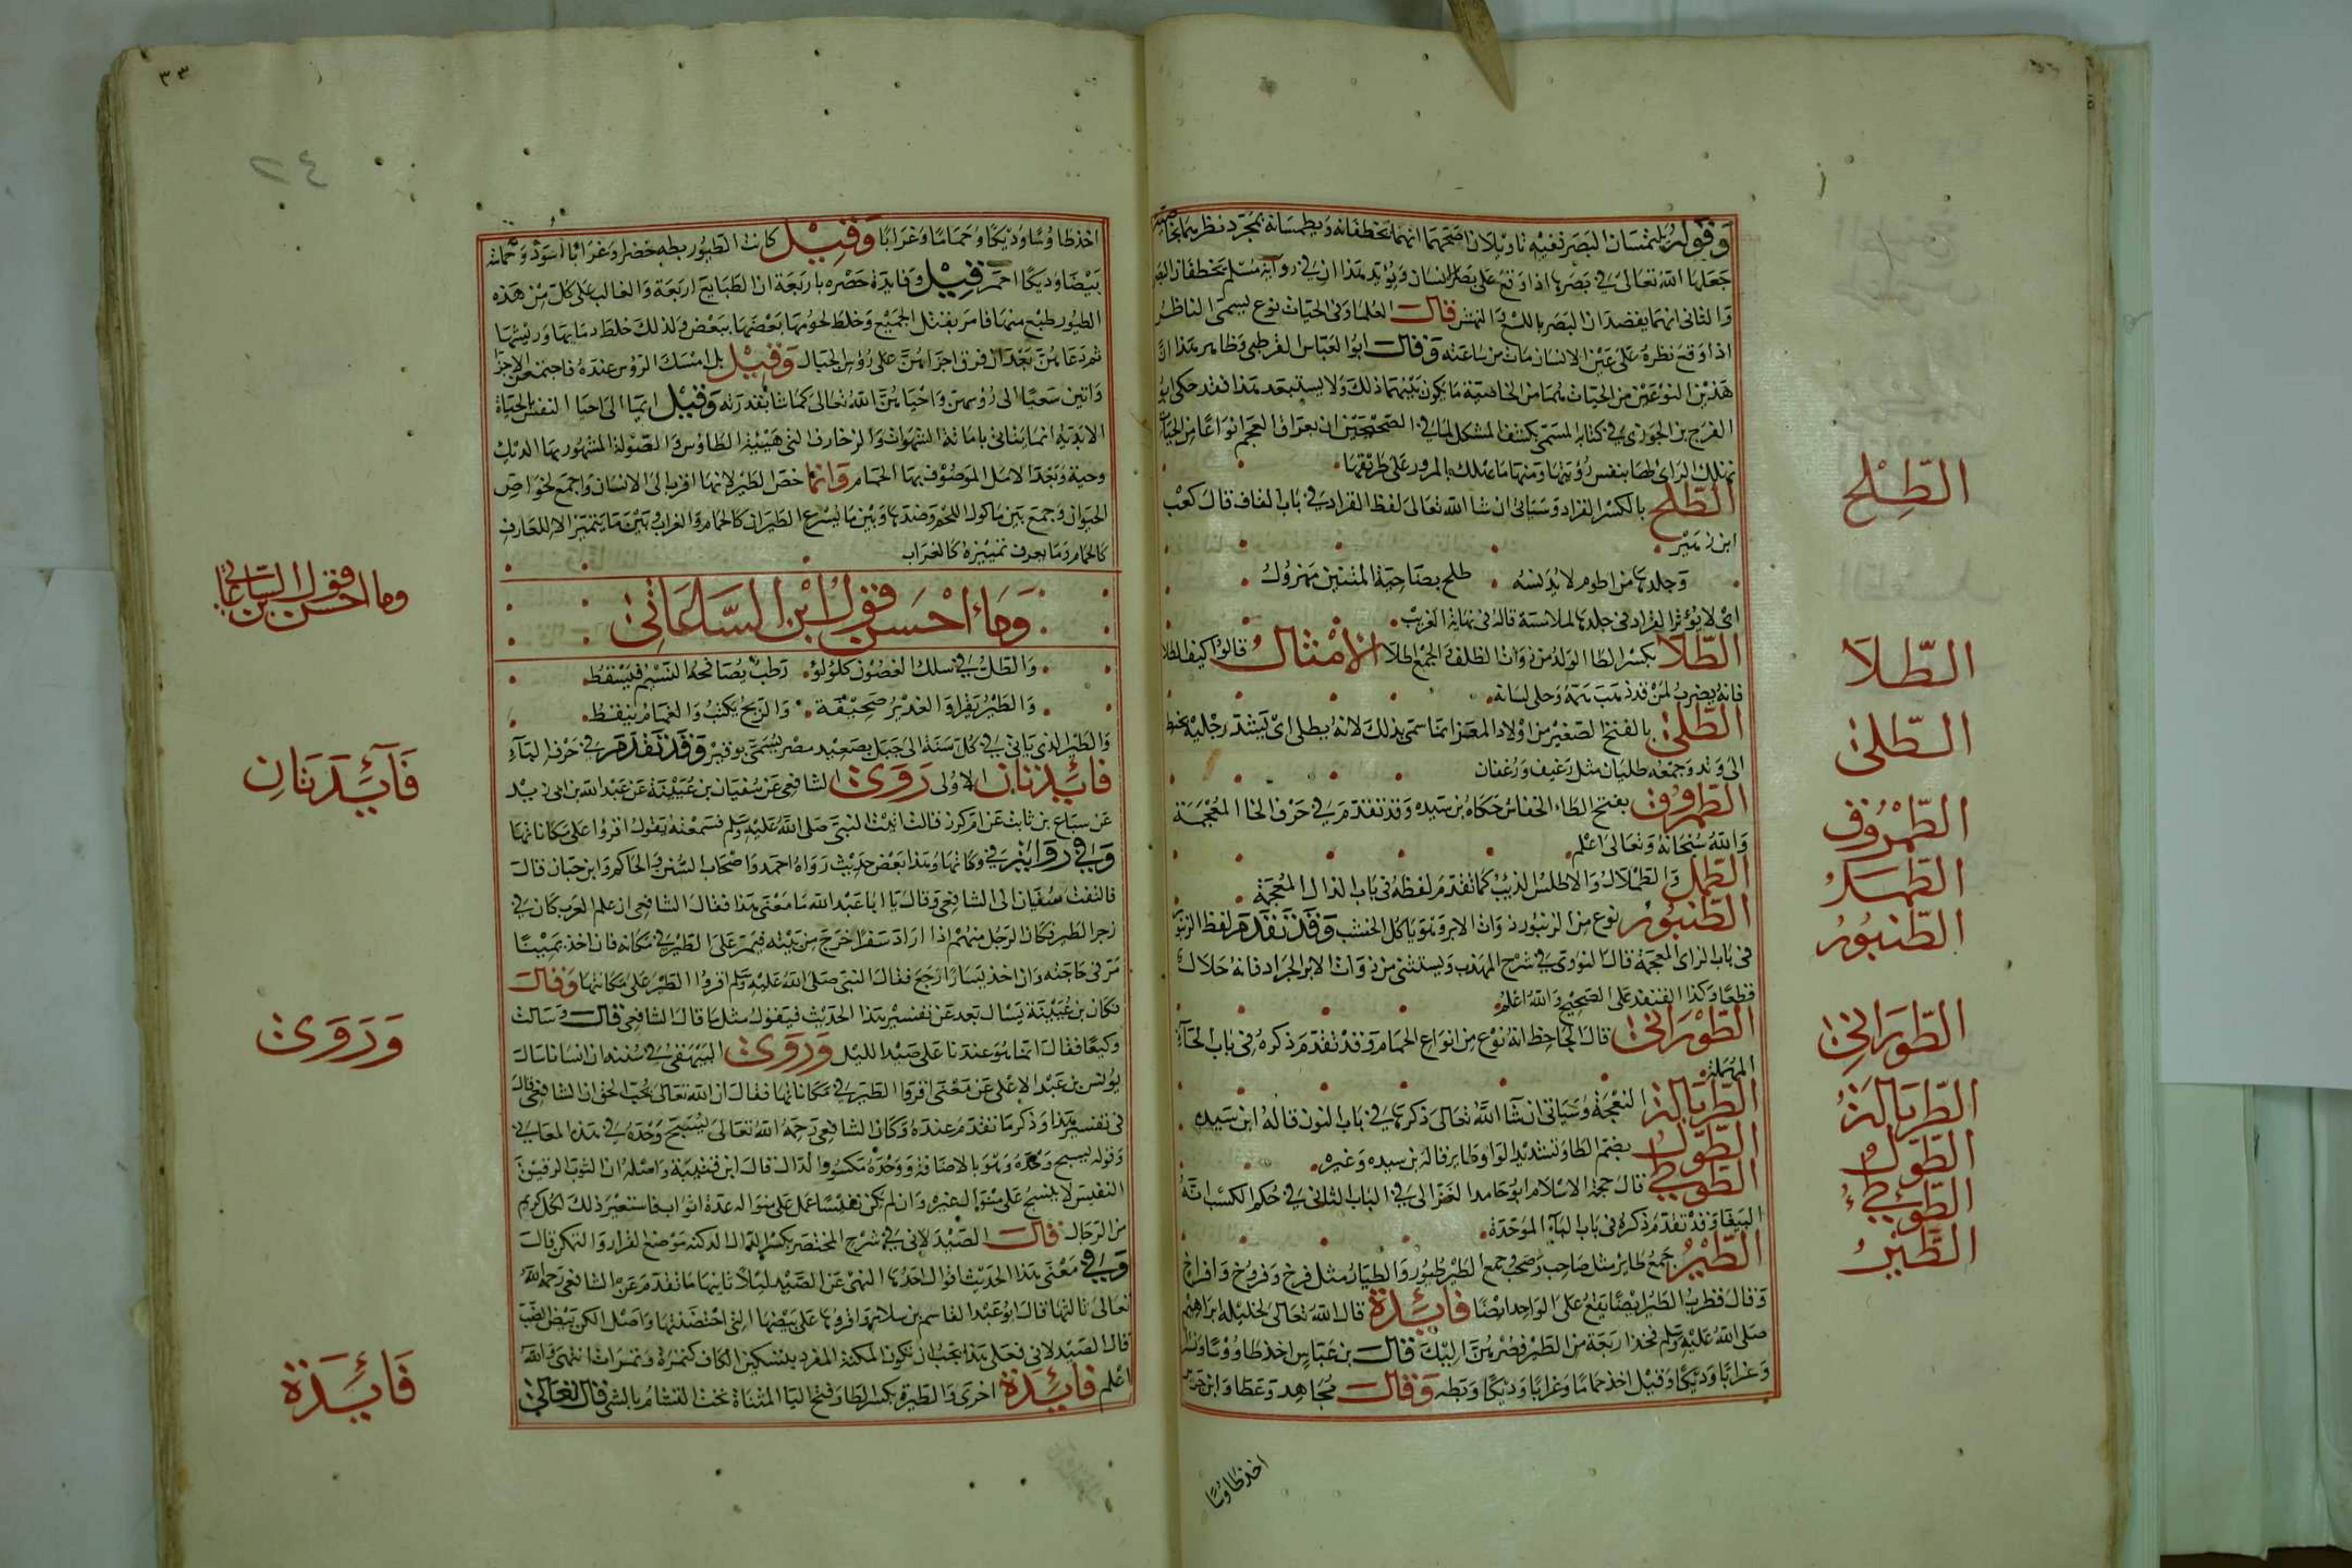 وقوله يلتمسان البصر فيه تاويلان اصحهما انهما يخطفانه ويطمسانه بمجرد نظرهما لخاصية
جعلها الله تعالى في بصرها اذا وقع على بصر الانسان ويؤيد هذا ان في رواية مسلم يخطفان البصر
والثاني انهما يقصدان البصر باللسع والنهش قالت العلما وفي الحيات نوع يسمى الناظر
اذا وقع نظره على عين الانسان مات من ساعته وقالت ابو العباس القرطبي وظاهر هذا ان
هذين النوعين من الحيات لهما من الخاصية ما يكون بينهما ذلك ولا يستبعد هذا فقد حكى ابو
الفرج بن الجوزي في كتابه المسمى بكشف المشكل لما في الصحيحين ان بعراق العجم انواعا من الحيات
تهلك الراى لها بنفس رؤيتها ومنها ما يهلك بالمرور على طريقها
الطلح بالكسر القراد وسياتي ان شا الله تعالى لفظ القراد في باب القاف قال كعب
ابن زهير
وجلدها من اطوم لا يؤيسه طلح بضاحية المتنين مهزول
اى لا يؤثر القراد في جلدها لملاسته قاله في نهاية الغريب
الطلا بكسر الطا الولد من ذوات الظلف والجمع اطلا الامثال قالوا كيف الطلا
فانه يضرب لمن قد ذهب همه وخلي لسانه
الطلى بالفتح الصغير من اولاد المعز انما سمى بذلك لانه يطلى اى يشد رجليه بخيط
الى وتد وجمعه طليان مثل رغيف ورغفان
الطمروق بفتح الطاء الخفاش حكاه بن سيده وقد تقدم في حرف الخا المعجمة
والله سبحانه وتعالى اعلم
الطمل والطملال والاطلس الذيب كما تقدم لفظه في باب الذال المعجمة
الطنبور نوع من الزنبور ذوات الابر وهو ياكل الخشب وقد تقدم لفظ الزنبور
في باب الزاى المعجمة قال النووى في شرح المهذب ويستثنى من ذوات الابر الجراد فانه حلال
قطعا وكذا القنفد على الصحيح والله اعلم
الطوراني قال الجاحظ انه نوع من انواع الحمام وقد تقدم ذكره في باب الحآء
المهملة
الطربالة النعجة وسياتي ان شآ الله تعالى ذكرها في باب النون قاله ابن سيده
الطول بضم الطا وتشديد الواو طاير قاله بن سيده وغيره
الطوطي قال حجة الاسلام ابو حامد الغزالى في الباب الثاني في حكم الكسب انه
الببغا وقد تقدم ذكره في باب البآء الموحدة
الطير جمع طاير مثل صاحب وصحب وجمع الطير طيور والطيار مثل فرخ وفروخ وافراخ
وقال قطرب الطير ايضا يقع على الواحد ايضا فايدة قال الله تعالى لخليله ابراهيم
صلى الله عليه وسلم فخذ اربعة من الطير فصرهن اليك قالت بن عباس اخذ طاووسا ونسرا
وغرابا وديكا وقيل اخذ حماما وغرابا وديكا وبطه وقالت مجاهد وعطا وابن جريج
اخذ طاوسا
الطلح
الطلا
الطلى
الطمروق
الطمل
الطنبور
الطوراني
الطربالة
الطول
الطوطي
الطير
٣٣
٢٤
اخذ طاوسا وديكا وحماما وغرابا وقيل كانت الطيور بطه خضرا وغرابا اسود وحمامة
بيضا وديكا احمر قيل وفايدة حصره باربعة ان الطبايع اربعة والغالب على كل من هذه
الطيور طبع منها فامر بقتل الجميع وخلط لحومها بعضها ببعض وكذلك خلط دمايها وريشها
ثم دعاهن بعد ان فرق اجزاهن على رؤس الجبال وقيل بل امسك الرؤس عنده فاجتمعن الاجزا
واتين سعيا الى رؤسهن واحياهن الله تعالى كما شا بقدرته وقيل ايما الى احيا النفس بالحياة
الابدية انما يتاتى باماتة الشهوات والزخارف التي هي صفة الطاوس والصولة المشهور بها الديك
وخسة وبعد الامل الموصوف بهما الحمام وانما خص الطير لانها اقرب الى الانسان واجمع لخواص
الحيوان وجمع بين ماكول اللحم وضده وبين ما يسرع الطيران كالحمام والغراب وبين ما يتميز الا للعارف
كالحمام وما يعرف تمييزه كالغراب
وماء احسن قول ابن الساعاتي
والطل في سلك الغصون كلولو رطب يصافحه النسيم فيسقط
والطير يقرا والغدير صحيفة والريح يكتب والغمام ينقط
والطير الذي ياتي في كل سنة الى جبل بصعيد مصر يسمى بوقير وقد تقدم في حرف البآء
فائدتان الاولى روى الشافعي عن سفيان بن عيينة عن عبد الله بن ابي زيد
عن سباع بن ثابت عن ام كرز قالت اتيت النبي صلى الله عليه وسلم فسمعته يقول اقروا على مكاناتها
وفي رواية في وكاناتها وهذا بعض حديث رواه احمد واصحاب السنن والحاكم وابن حبان قالت
فالتفت سفيان الى الشافعي وقال يا ابا عبد الله ما معنى هذا فقال الشافعي ان علم العرب كان في
زجر الطير فكان الرجل منهم اذا اراد سفرا خرج من بيته فيمر على الطير في مكانه فان اخذ يمينا
مر في حاجته وان اخذ يسارا رجع فقال النبي صلى الله عليه وسلم اقروا الطير على مكاناتها وقالت
فكان بن عيينة يسال بعد عن تفسير هذا الحديث فيقول مثل ما قال الشافعي قالت وسالت
وكيعا فقال انما هو عندنا على صيد الليل وروى البيهقي في سننه ان انسانا سال
يونس بن عبد الاعلى عن معنى اقروا الطير في مكاناتها فقال ان الله تعالى يحب الحق ان الشافعي قال
في تفسير هذا وذكر ما تقدم عنده وكان الشافعي رحمه الله تعالى نسيج وحده في هذه المعاني
وقوله نسيج وحده وهو بالاضافة ووحده مكسور الدال قال ابن قتيبة واصله ان الثوب الرفيع
النفيس لا ينسج على منواله غيره وان لم يكن نفيسا عمل على منواله عدة اثواب فاستعير ذلك لكل كريم
من الرجال قالت الصيدلاني في شرح المختصر بكسر الدال المكنه موضع القرار والتمكن قالت
وفي معنى هذا الحديث اقوال احدها النهي عن الصيد ليلا ثانيها ما تقدم عن الشافعي رحمه الله
تعالى ثالثها قال ابو عبد القاسم بن سلام اقروها على بيضها التي احتضنتها واصل المكن بيض الضب
قال الصيدلاني فعلى هذا يجب ان تكون المكنة المفرد بتسكين الكاف كتمرة وتمرات انتهى والله
اعلم فائدة اخرى والطيرة بكسر الطا وفتح اليا المثناة تحت التشاؤم بالشي قال تعالى
وما احسن قول بن الساعاتي
فائدتان
وروى
فائدة